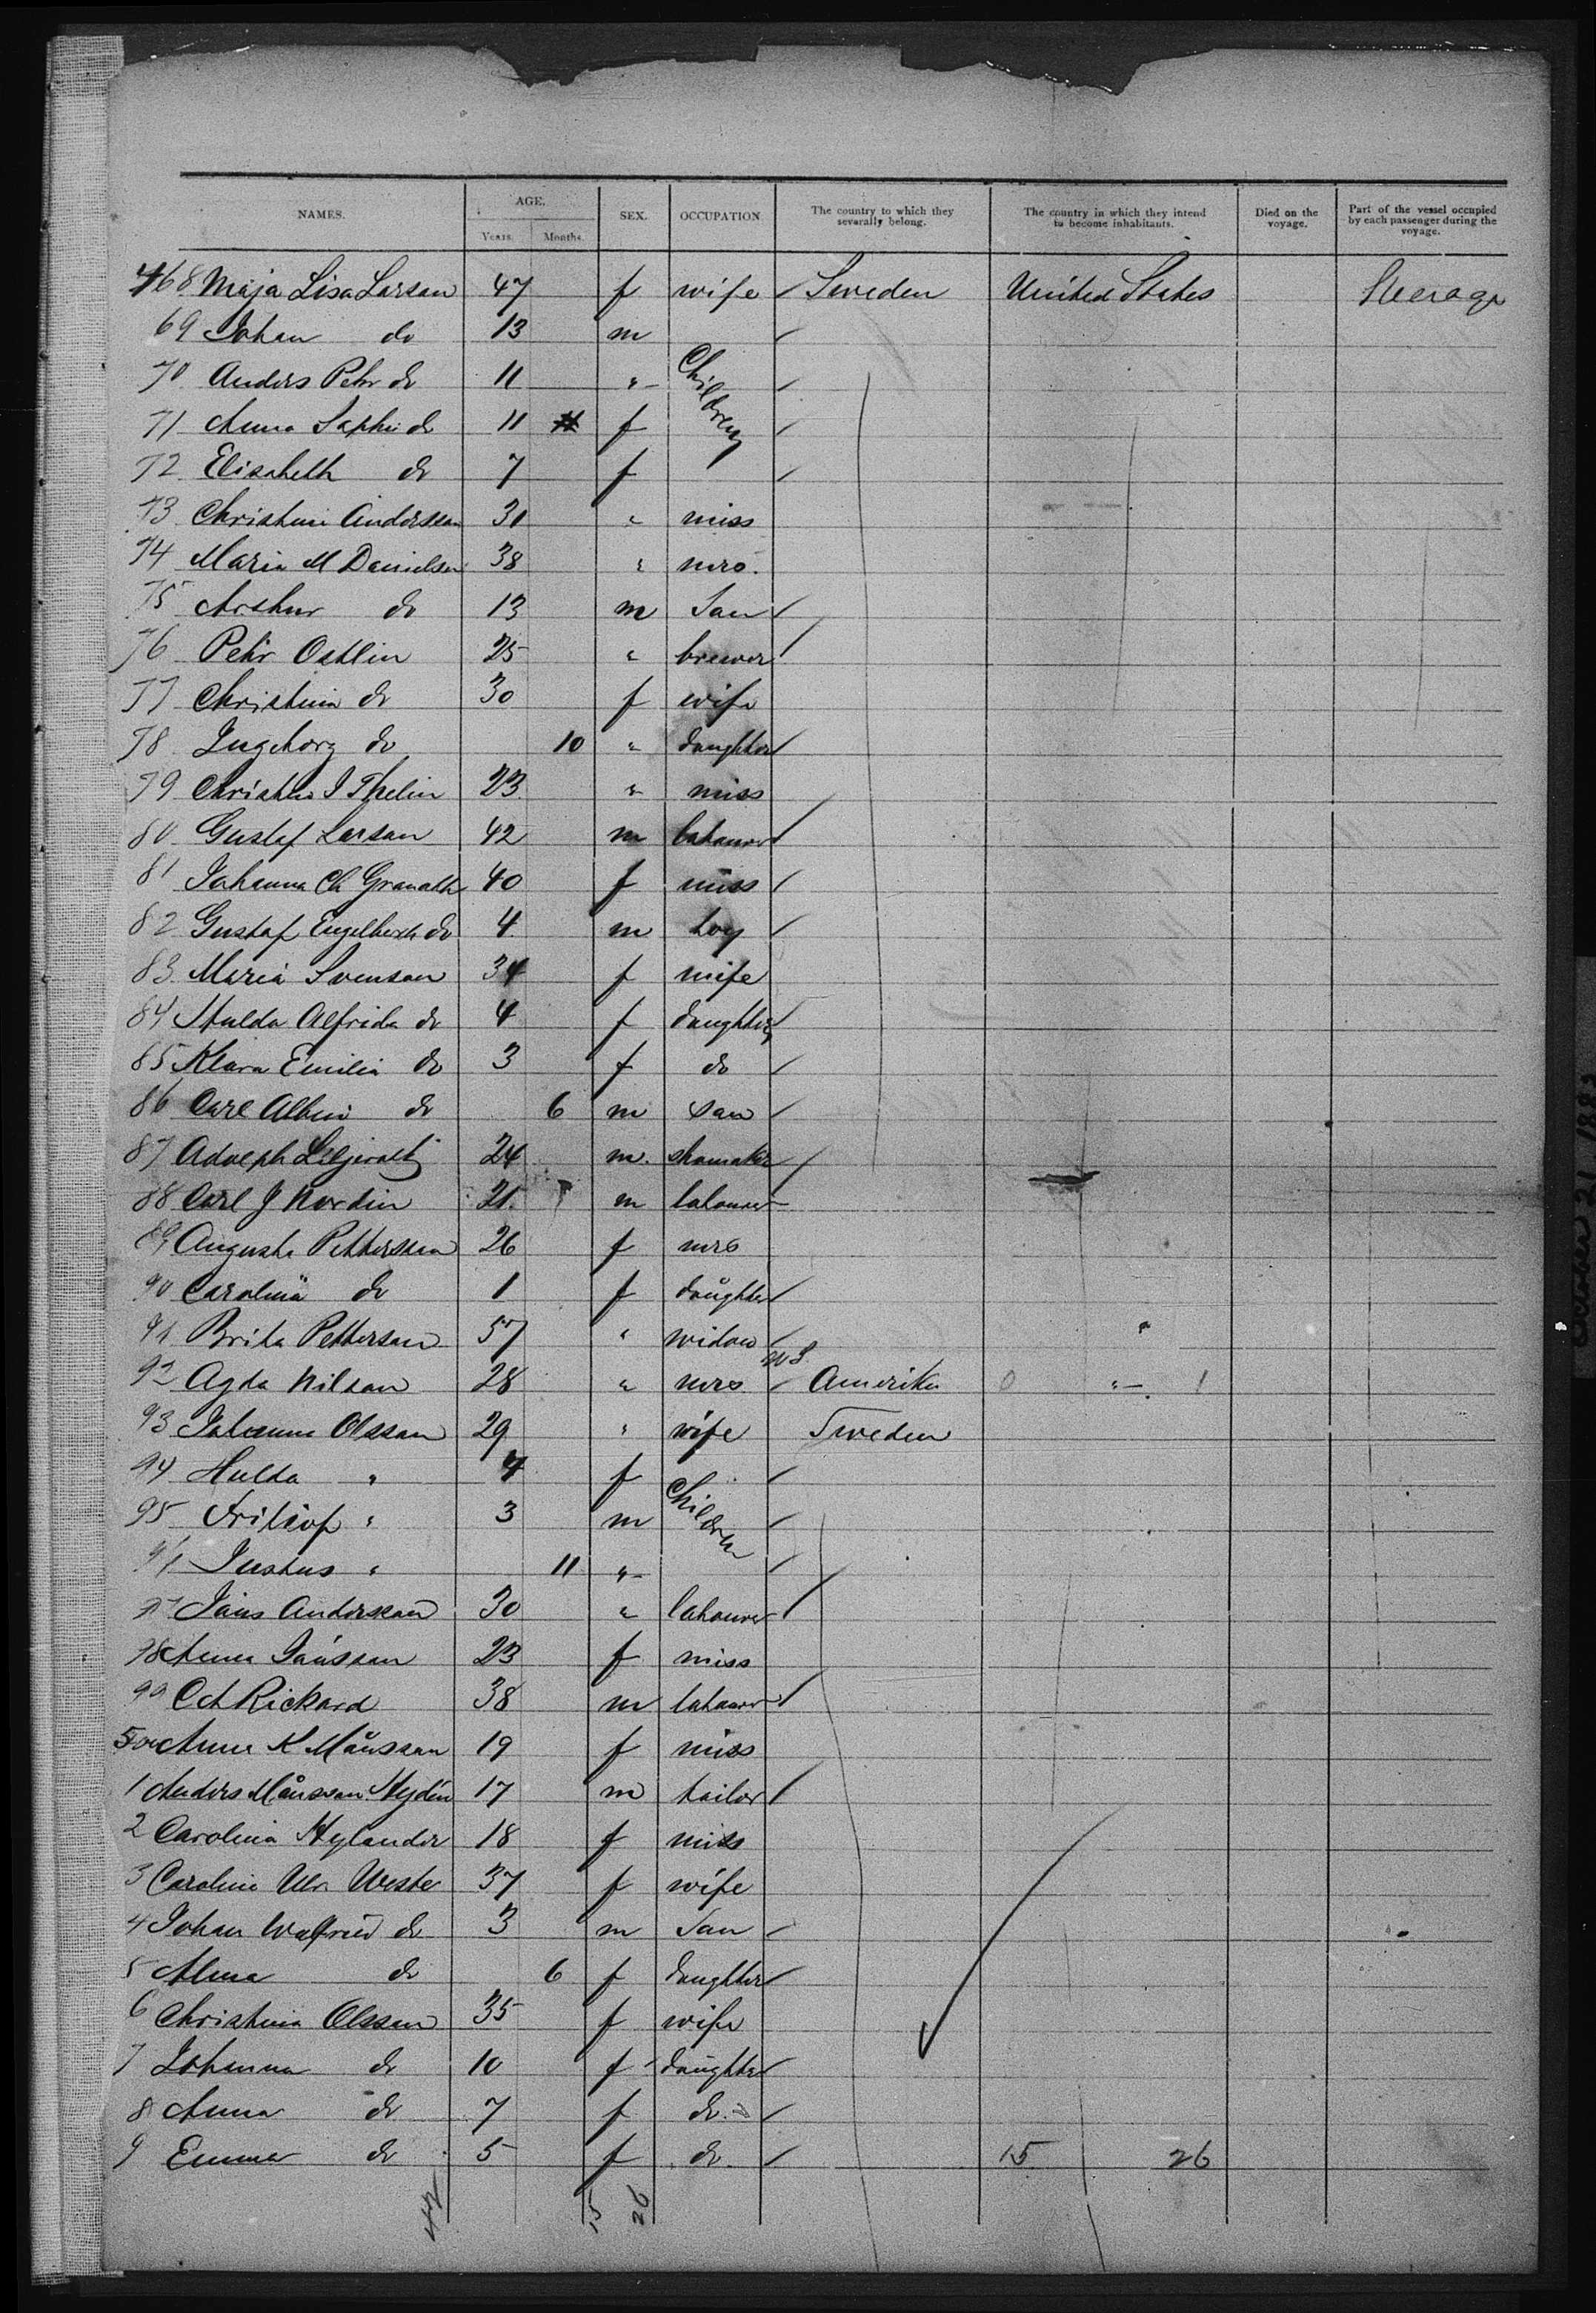 NAMES. AGE. SEX. OCCUPATION The country to which they severally belong. The country in which they intend to become inhabitants. Died on the voyage. Part of the vessel occupied by each passenger during the voyage.
Years. Months.
468 Maja Lisa Larson 47 f wife Sweden United States Steerage
69 Johan do 13 m
70 Anders Pehr do 11 "
Children
71 Anna Sophi do 11 f
72 Elisabeth do 7 f
73 Christina Andersson 31 " miss
74 Maria M Danielson 38 " mrs.
75 Arthur do 13 m Son
76 Pehr Ostlin 25 " brewer
77 Christina do 30 f wife
78 Ingeborg do 10 " daughter
79 Christin I Thelin 23 " miss
80 Gustaf Larson 42 m labourer
81 Johanna Ch Granath 40 f miss
82 Gustaf Engelbert do 4 m boy
83 Maria Svenson 34 f wife
84 Hulda Alfrida do 4 f daughter
85 Klara Emilia do 3 f do
86 Carl Albin do 6 m son
87 Adolph 24 m. shomaker
88 Carl J Nordin 21. m labourer
89 Augusta Pettersson 26 f mrs
90 Carolina do 1 f daughter
91 Brita Petterson 57 " widow
92 Agda Nilson 28 " mrs U S Amerika 0 " 1
93 Johanna Olsson 29 " wife Sweden
94 Hulda " 4 f
Children
95 Fritiof " 3 m
Justus " 11 "
97 Jöns Andersson 30 " labourer
98 Anna Jönsson 23 f miss
99 Rickard 38 m labourer
500 Anna K Månsson 19 f miss
1 Anders Månsson Hydén 17 m tailor
2 Carolina Hylander 18 f miss
3 Carolina Ulr. Wester 37 f wife
4 Johan Walfried do 3 m Son
5 Alma do 6 f daughter
6 Christina Olsson 35 f wife
7 Johanna do 10 f daughter
8 Anna do 7 f do
9 Emma do 5 f do 15 26
42 15 26